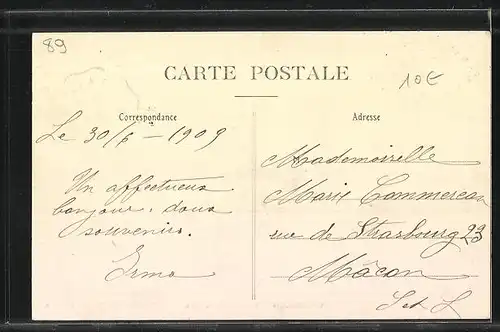 89
CARTE POSTALE
10€
Correspondance
Le 30/6 – 1909
Un affectueux
bonjour. doux
souvenirs.
Erma
Adresse
Mademoiselle
Marie Commereau
rue de Strasbourg 23
Mâcon
S et L